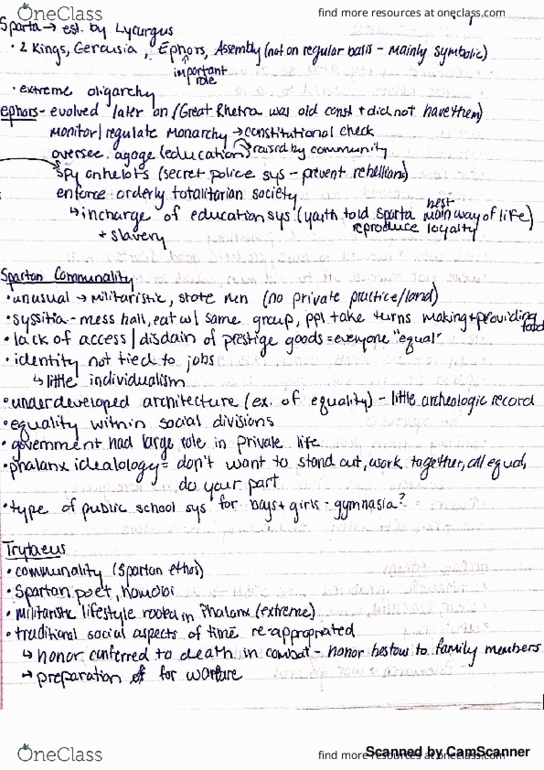 OneClass
find more resources at oneclass.com
Sparta → est. by Lycurgus
• 2 Kings, Gerousia, Ephors, Assembly (not on regular basis - mainly symbolic)
important role
• extreme oligarchy
ephors - evolved later on (Great Rhetra was old const + did not have them)
monitor/regulate monarchy → constitutional check
oversee agoge (education) → raised by community
spy on helots (secret police sys - prevent rebellions)
enforce orderly totalitarian society
↳ incharge of education sys (youth told Sparta best main way of life)
reproduce loyalty
+ slavery
Spartan Communality
• unusual → militaristic, state run (no private practice/land)
• syssitia - mess hall, eat w/ same group, ppl take turns making + providing food
• lack of access/disdain of prestige goods = everyone "equal"
• identity not tied to jobs
↳ little individualism
• underdeveloped architecture (ex. of equality) - little archeologic record
• equality within social divisions
• government had large role in private life
• phalanx idealology = don't want to stand out, work together, all equal,
do your part
• type of public school sys for boys + girls - gymnasia?
Trytaeus
• communality (Spartan ethos)
• Spartan poet,
• militaristic lifestyle rooted in Phalanx (extreme)
• traditional social aspects of time re-appropriated
↳ honor conferred to death in combat - honor bestow to family members
↳ preparation for warfare
OneClass
find more resources at oneclass.com
Scanned by CamScanner